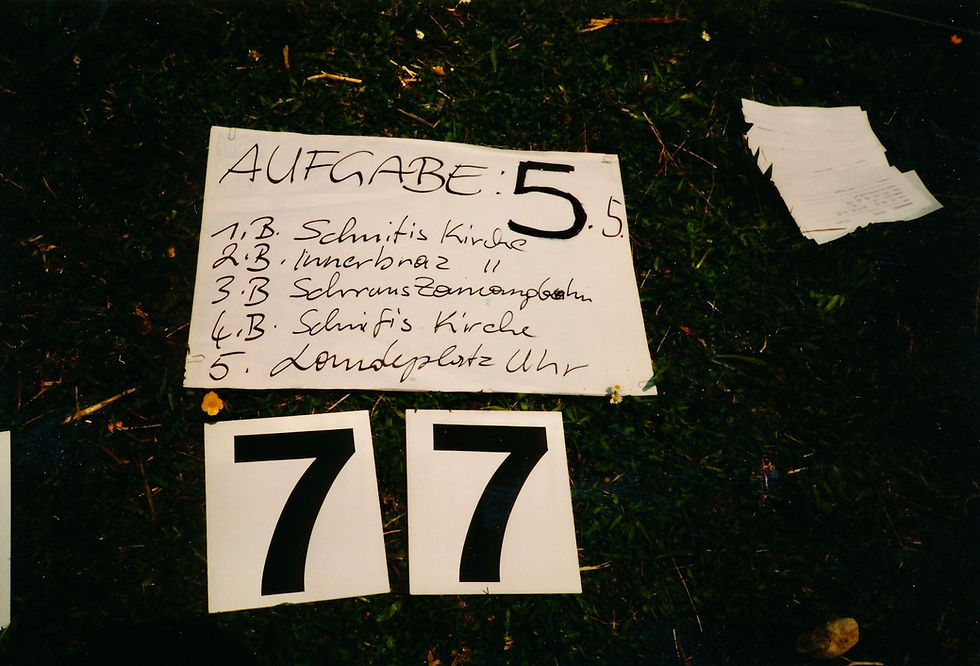 AUFGABE: 5. 5.
1. B. Schnifis Kirche
2. B. Innerbraz "
3. B Schruns Zamangbahn
4. B. Schnifis Kirche
5. Landeplatz Uhr
7 7